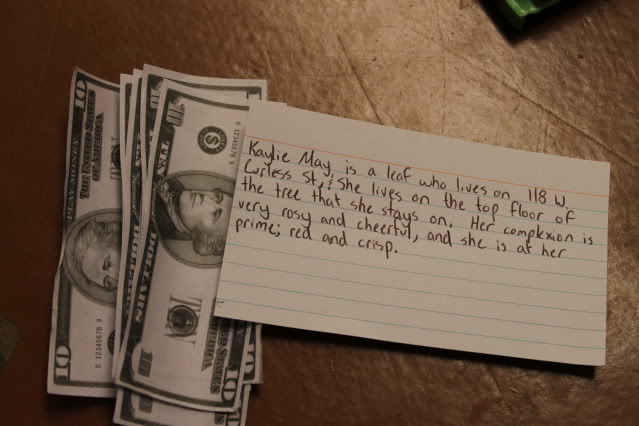 Kaylie May, is a leaf who lives on 118 W.
Curless St.; She lives on the top floor of
the tree that she stays on. Her complexion is
very rosy and cheerful, and she is at her
prime; red and crisp.
PLAY MONEY
THE UNITED STATES
OF AMERICA
10
10
0 12345678 9
TEN DOLLARS
TEN
10
10
0 12345678 9